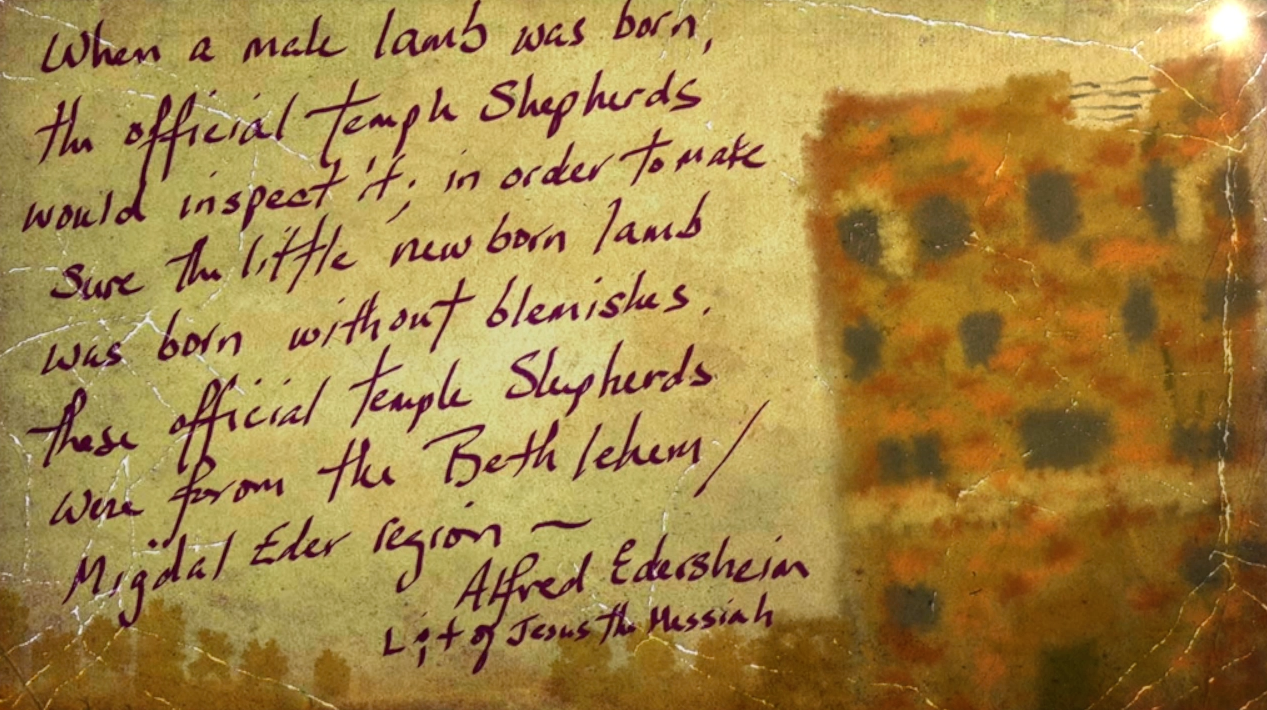 When a male lamb was born,
the official Temple Shepherds
would inspect it; in order to make
Sure the little new born lamb
was born without blemishes.
these official Temple Shepherds
were from the Bethlehem/
Migdal Eder region ~
Alfred Edersheim
L; t of Jesus the Messiah